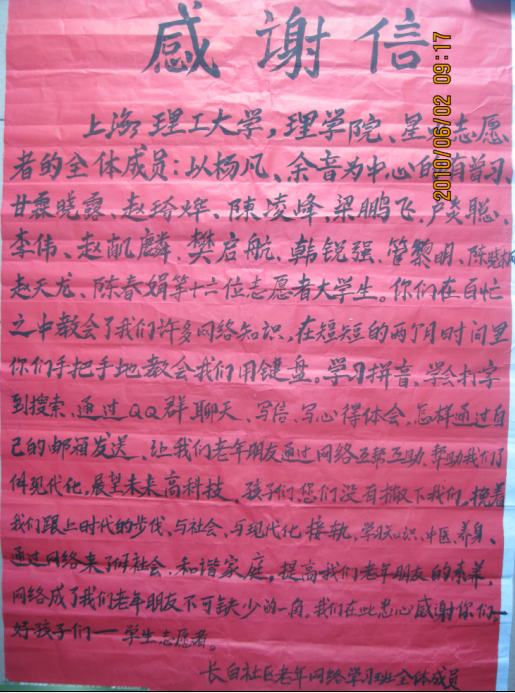 感谢信
上海理工大学,理学院、星 志愿
者的全体成员、以杨凡、余音为中心的有曾习、
甘霖晓露、赵琦烨、陈凌峰、梁鹏飞、卢炎聪、
李伟、赵 麟、樊启航、韩锐强、管黎明、陈
赵天龙、陈春娟等十六位志愿者大学生。你们在百忙
之中教会了我们许多网络知识,在短短的两个月时间里
你们手把手地教会我们用键盘。学习拼音、学会打字
到搜索、通过QQ群聊天、写信、写心得体会、怎样通过自
己的邮箱发送、让我们老年朋友通过网络互帮互助、帮助我们了
解现代化,展望未来高科技、孩子们您们没有撇下我们,挽着
我们跟上时代的步伐、与社会、与现代化接轨,学习知识、中医、养身、
通过网络来了解社会、和谐家庭,提高我们老年朋友的素养,
网络成了我们老年朋友不可缺少的一角。我们在此忠心感谢你们。
好孩子们一学生志愿者。
长白社区老年网络学习班全体成员
2010/06/02 09:17